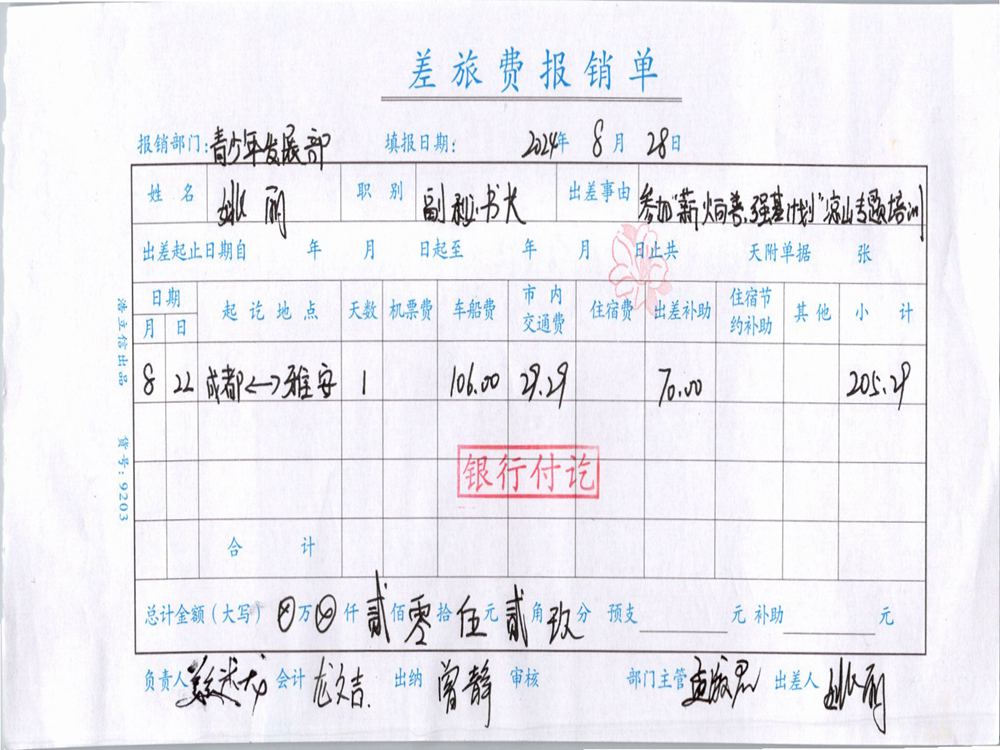 差旅费报销单
报销部门:青少年发展部 填报日期: 2024年 8月 28日
姓名 姚丽 职别 副秘书长 出差事由 参加"薪火向善,强基计划"凉山专题培训
出差起止日期自 年 月 日起至 年 月 日止共 天附单据 张
日期 起讫地点 天数 机票费 车船费 市内交通费 住宿费 出差补助 住宿节约补助 其他 小计
月 日
8 22 成都<->雅安 1 106.00 29.29 70.00 205.29
银行付讫
合计
总计金额(大写) ⊗万⊗仟贰佰零拾伍元贰角玖分 预支 元 补助 元
负责人 会计 龙文吉 出纳 曾静 审核 部门主管 出差人 姚丽
浩立信出品 货号:9203